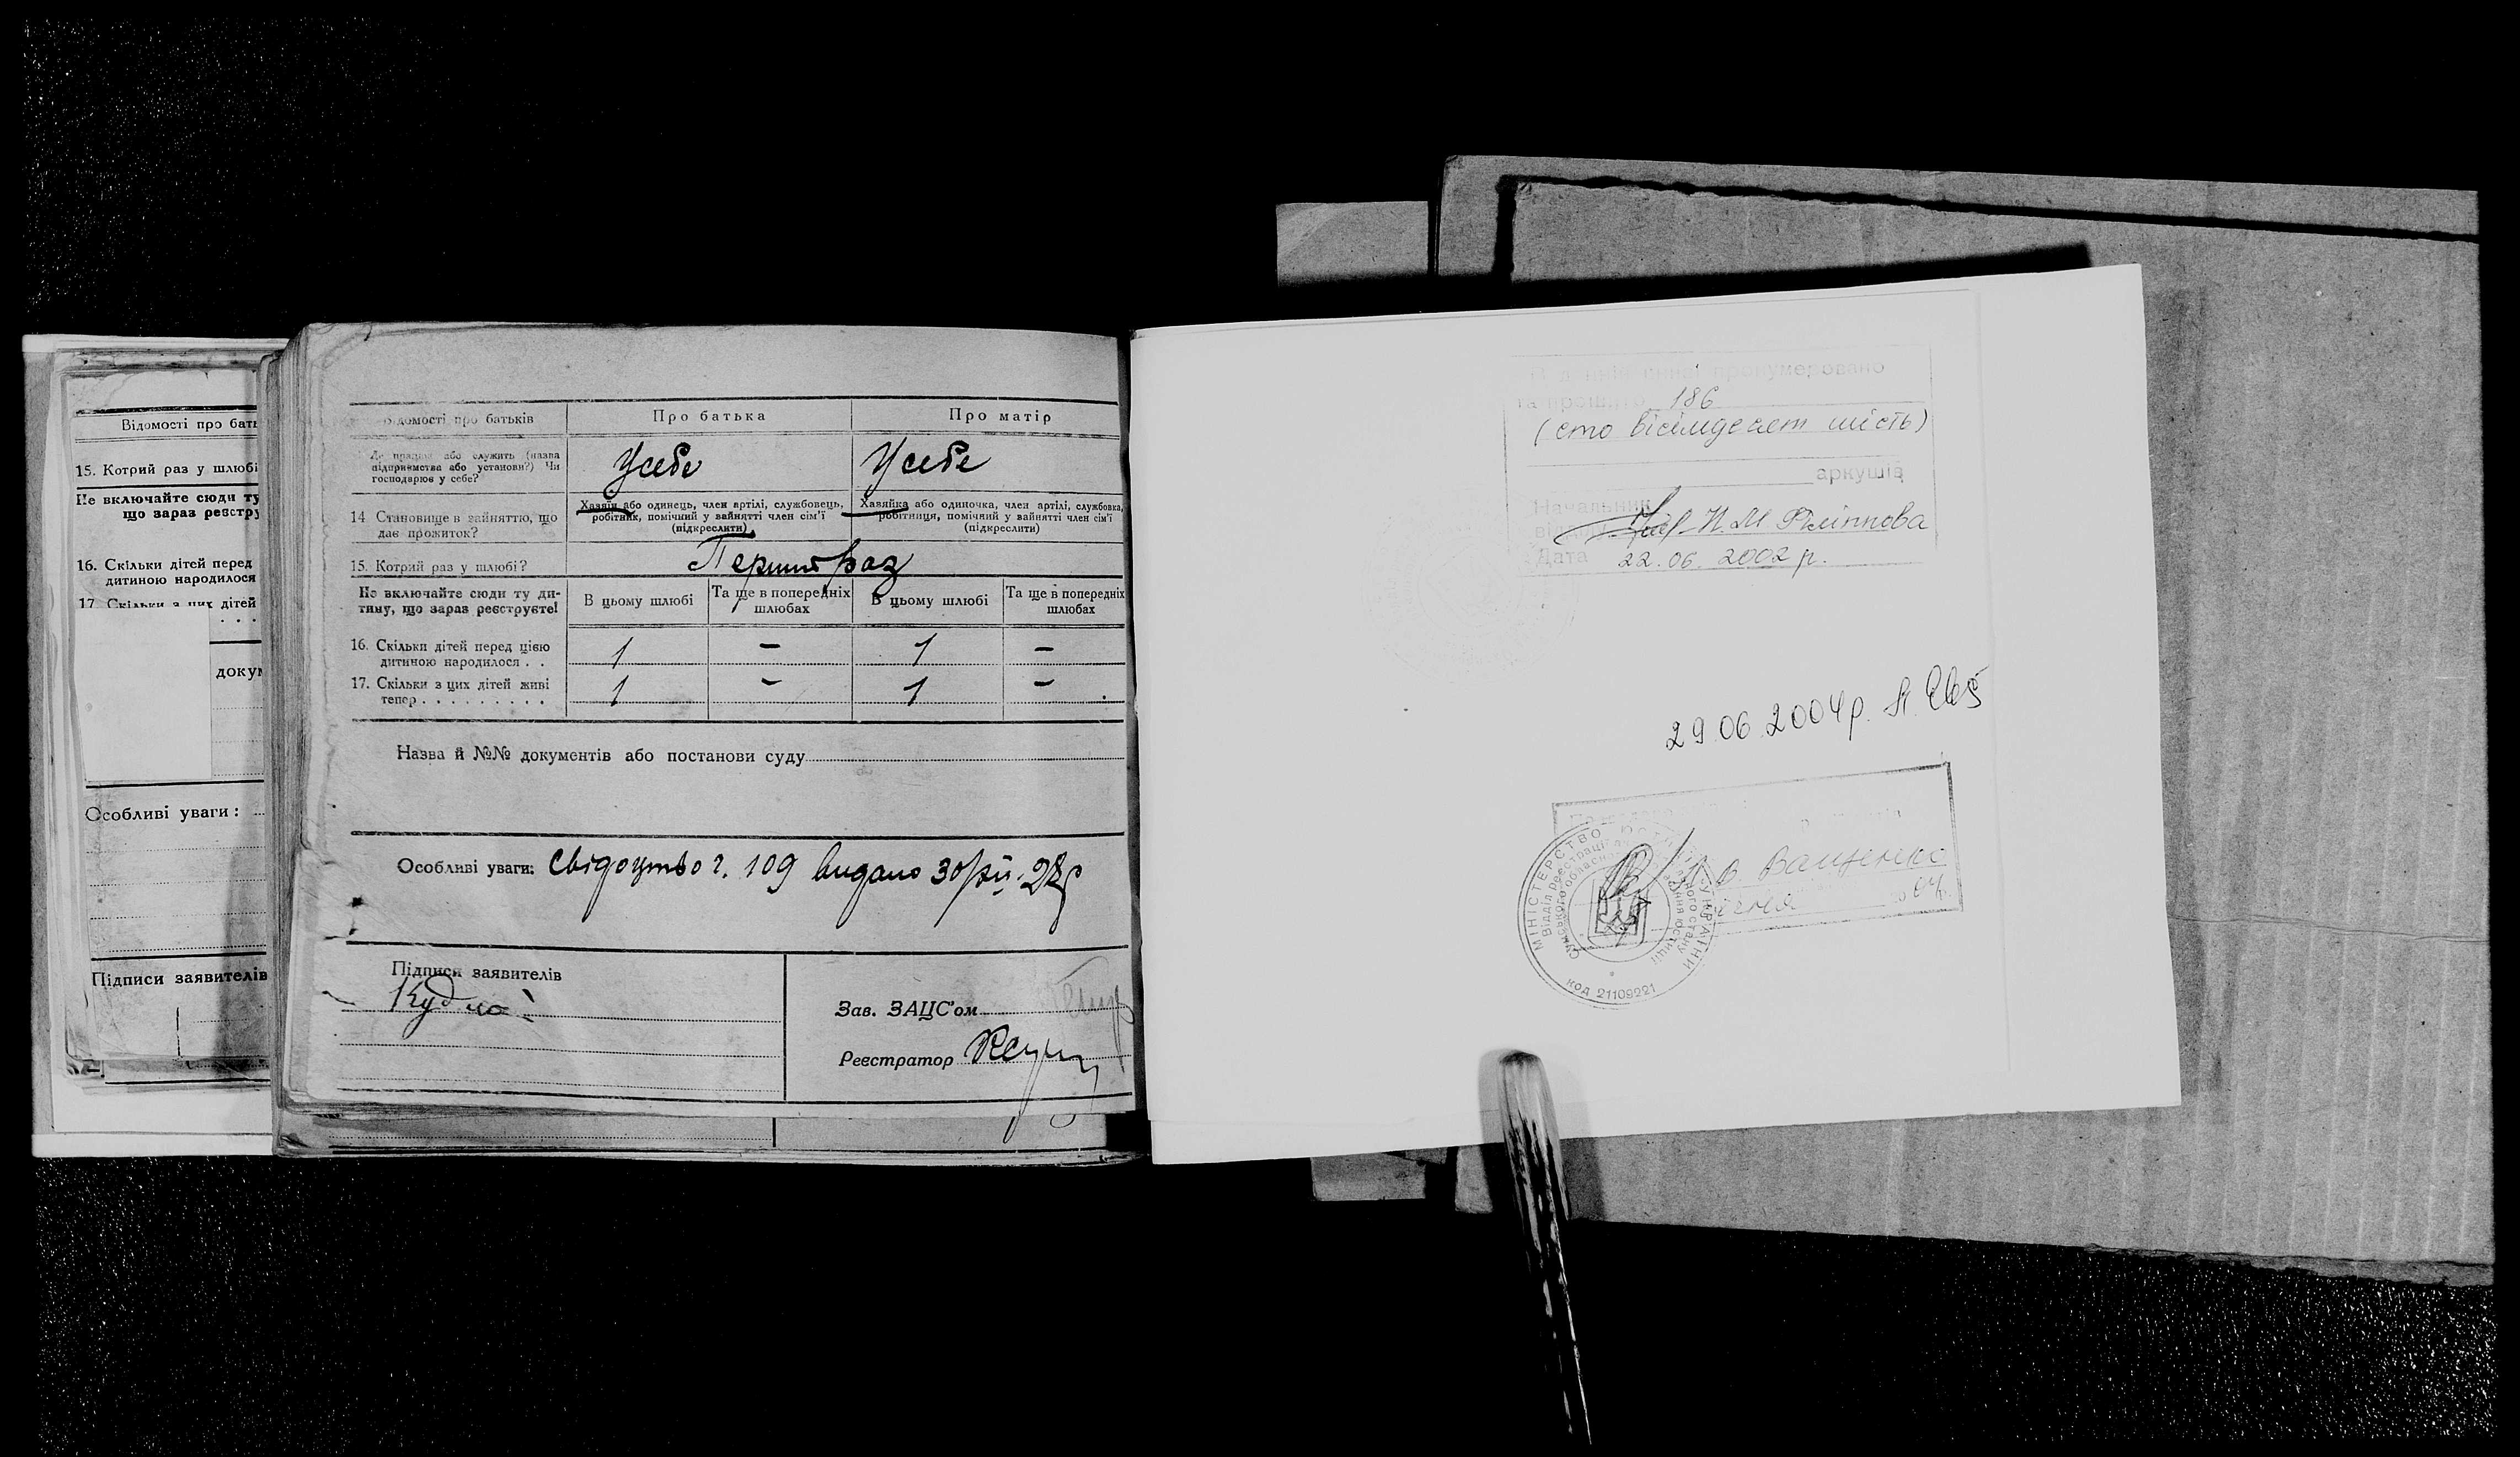 Відомості про бать
15. Котрий раз у шлюбі
Не включайте сюди ту
що зараз реєстру
16. Скільки дітей перед
дитиною народилося
17. Скільки з цих дітей
докум
Особливі уваги:
Підписи заявителів
Відомості про батьків
Про батька
Про матір
Де працює або служить (назва
підприємства або установи?) Чи
господарює у себе?
Усебе
Усебе
14 Становище в зайняттю, що
дає прожиток?
Хазяїн або одинець, член артілі, службовець,
робітник, помічний у зайнятті член сім'ї
(підкреслити)
Хазяйка або одиночка, член артілі, службовка,
робітниця, помічний у зайнятті член сім'ї
(підкреслити)
15. Котрий раз у шлюбі?
Перший раз
Не включайте сюди ту ди-
тину, що зараз реєструєте!
В цьому шлюбі
Та ще в попередніх
шлюбах
В цьому шлюбі
Та ще в попередніх
шлюбах
16. Скільки дітей перед цією
дитиною народилося . .
1 – 1 –
17. Скільки з цих дітей живі
тепер . . . . . . . . .
1 – 1 –
Назва й №№ документів або постанови суду
Особливі уваги: Свідоцтво ч. 109 видано 30/XII. 28р
Підписи заявителів
Зав. ЗАЦС'ом
Реєстратор
пронумеровано
та прошито 186
(сто вісімдесят шість)
аркушів
Начальник
Н. М Філіппова
Дата 22.06.2002 р.
29.06.2004р.
В Ващенко
МІНІСТЕРСТВО ЮСТИЦІЇ УКРАЇНИ
Відділ реєстрації
код 21109221